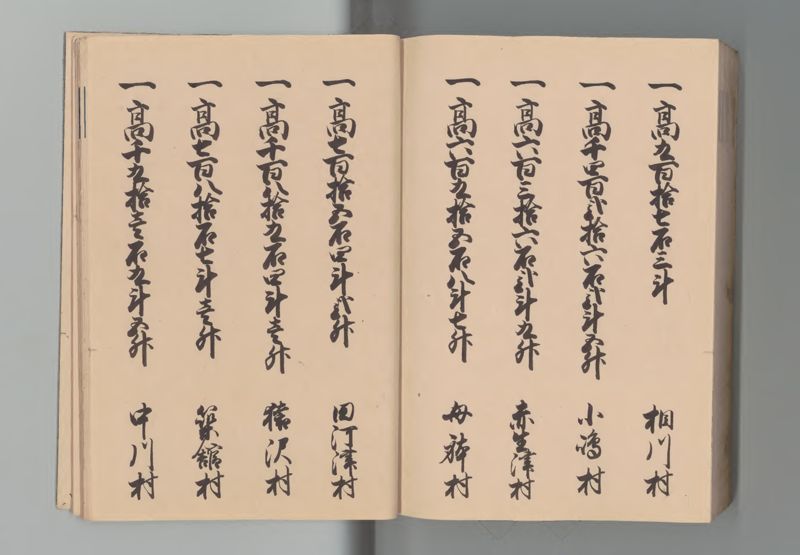 一高九百拾七石三斗 相川村
一高千四百弐拾六石弐斗五升 小嶋村
一高六百三拾六石弐斗九升 赤生津村
一高六百九拾五石八斗七升 母躰村
一高七百拾五石四斗弐升 田河津村
一高千百八拾九石四斗壱升 猿沢村
一高七百八拾石七斗壱升 築舘村
一高千九拾壱石九斗五升 中川村